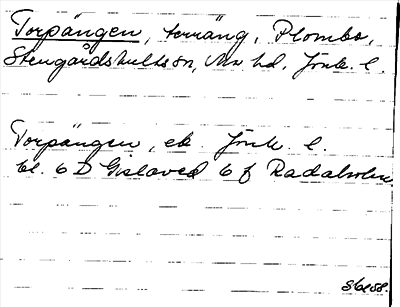 Torpängen, terräng, Plombo,
Stengårdshults sn, Mo hd, Jönk. l.
Torpängen, ek. Jönk l.
bl. 6 D Gislaved 6 f Radaholm